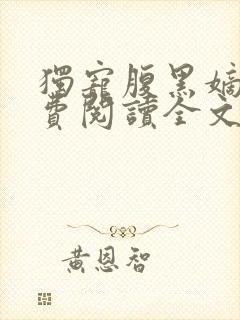 獨寵腹黑嫡
費閱讀全文
黃恩智